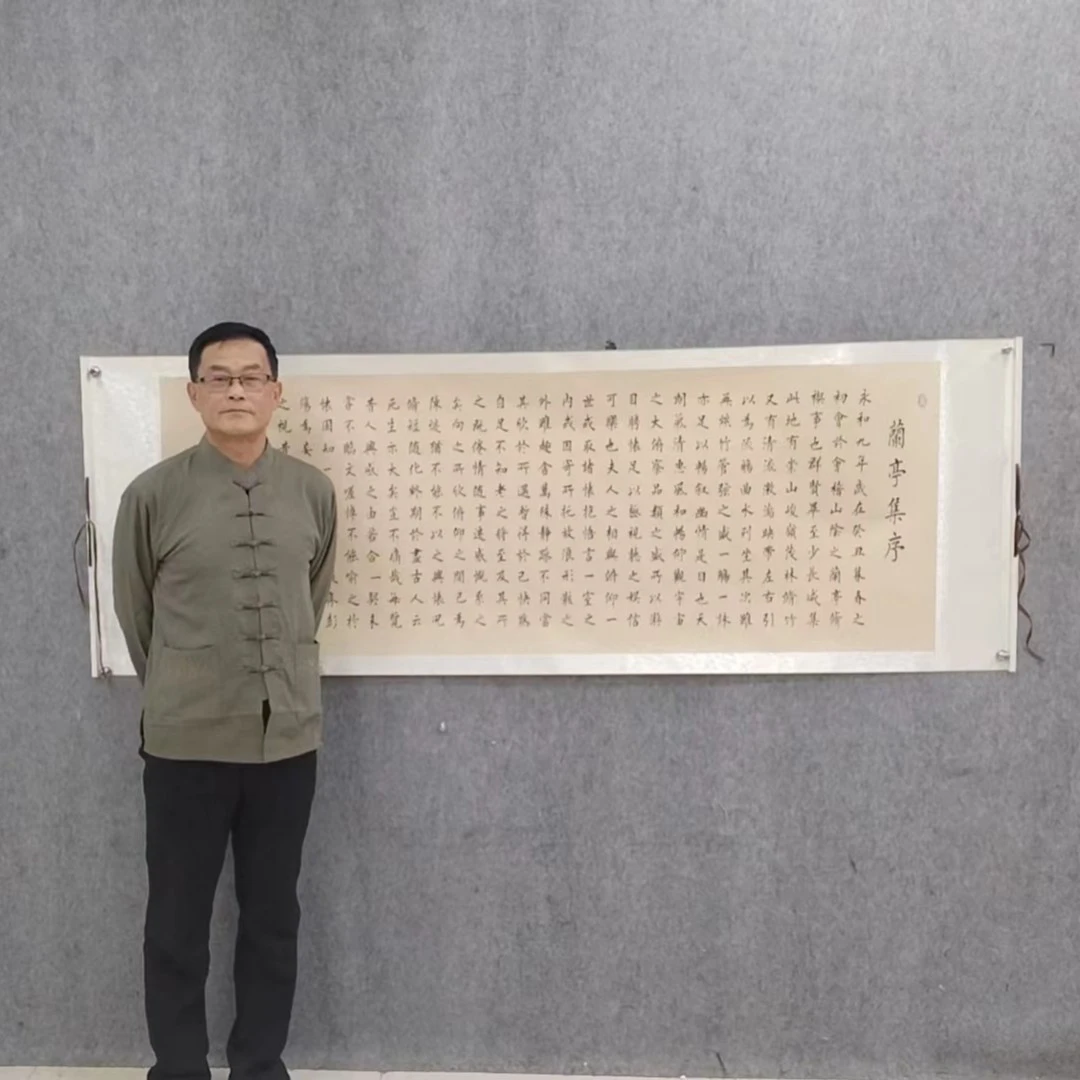 蘭亭集序
永和九年歲在癸丑暮春之
初會於會稽山陰之蘭亭脩
禊事也群賢畢至少長咸集
此地有崇山峻嶺茂林脩竹
又有清流激湍映帶左右引
以為流觴曲水列坐其次雖
無絲竹管弦之盛一觴一詠
亦足以暢敘幽情是日也天
朗氣清惠風和暢仰觀宇宙
之大俯察品類之盛所以遊
目騁懷足以極視聽之娛信
可樂也夫人之相與俯仰一
世或取諸懷抱悟言一室之
內或因寄所托放浪形骸之
外雖趣舍萬殊靜躁不同當
其欣於所遇暫得於己快然
自足不知老之將至及其所
之既倦情隨事遷感慨系之
矣向之所欣俯仰之間已為
陳跡猶不能不以之興懷況
脩短隨化終期於盡古人云
死生亦大矣豈不痛哉每覽
昔人興感之由若合一契未
嘗不臨文嗟悼不能喻之於
懷固知一彭
殤為妄
之視昔